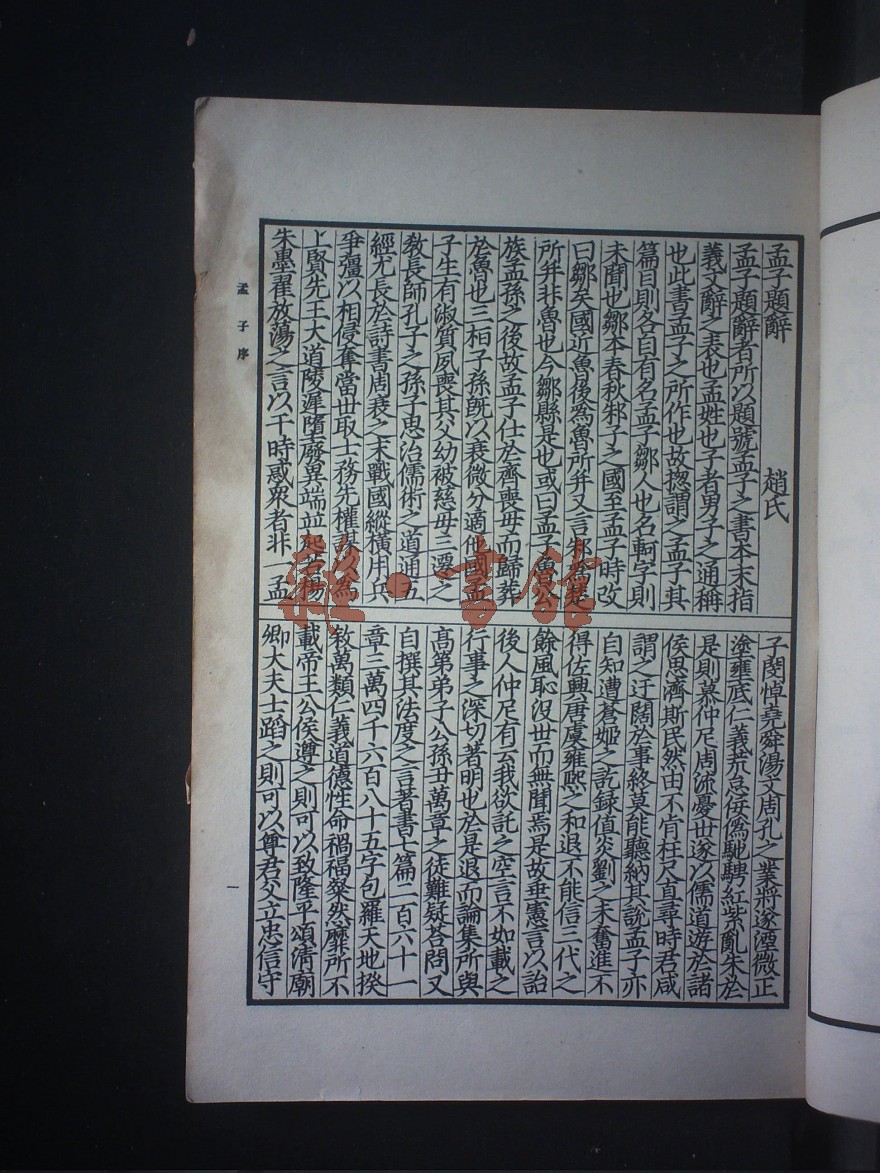 孟子題辭 趙氏
孟子題辭者所以題號孟子之書本末指
義文辭之表也孟姓也子者男子之通稱
也此書孟子之所作也故揔謂之孟子其
篇目則各自有名孟子鄒人也名軻字則
未聞也鄒本春秋邾子之國至孟子時改
曰鄒矣國近魯後為魯所并又言邾為楚
所并非魯也今鄒縣是也或曰孟子魯公
族孟孫之後故孟子仕於齊喪母而歸葬
於魯也三桓子孫旣以衰微分適他國孟
子生有淑質夙喪其父幼被慈母三遷之
敎長師孔子之孫子思治儒術之道通五
經尤長於詩書周衰之末戰國縱橫用兵
爭彊以相侵奪當世取士務先權謀以為
上賢先王大道陵遲墮廢異端並起若楊
朱墨翟放蕩之言以干時惑衆者非一孟
子閔悼堯舜湯文周孔之業將遂湮微正
塗壅底仁義荒怠佞僞馳騁紅紫亂朱於
是則慕仲尼周流憂世遂以儒道遊於諸
侯思濟斯民然由不肯枉尺直尋時君咸
謂之迂闊於事終莫能聽納其說孟子亦
自知遭蒼姬之訖録值炎劉之未奮進不
得佐興唐虞雍熙之和退不能信三代之
餘風恥沒世而無聞焉是故垂憲言以詒
後人仲尼有云我欲託之空言不如載之
行事之深切著明也於是退而論集所與
高第弟子公孫丑萬章之徒難疑荅問又
自撰其法度之言著書七篇二百六十一
章三萬四千六百八十五字包羅天地揆
敘萬類仁義道德性命禍福粲然靡所不
載帝王公侯遵之則可以致隆平頌清廟
卿大夫士蹈之則可以尊君父立忠信守
孟子序
一
雜·書館